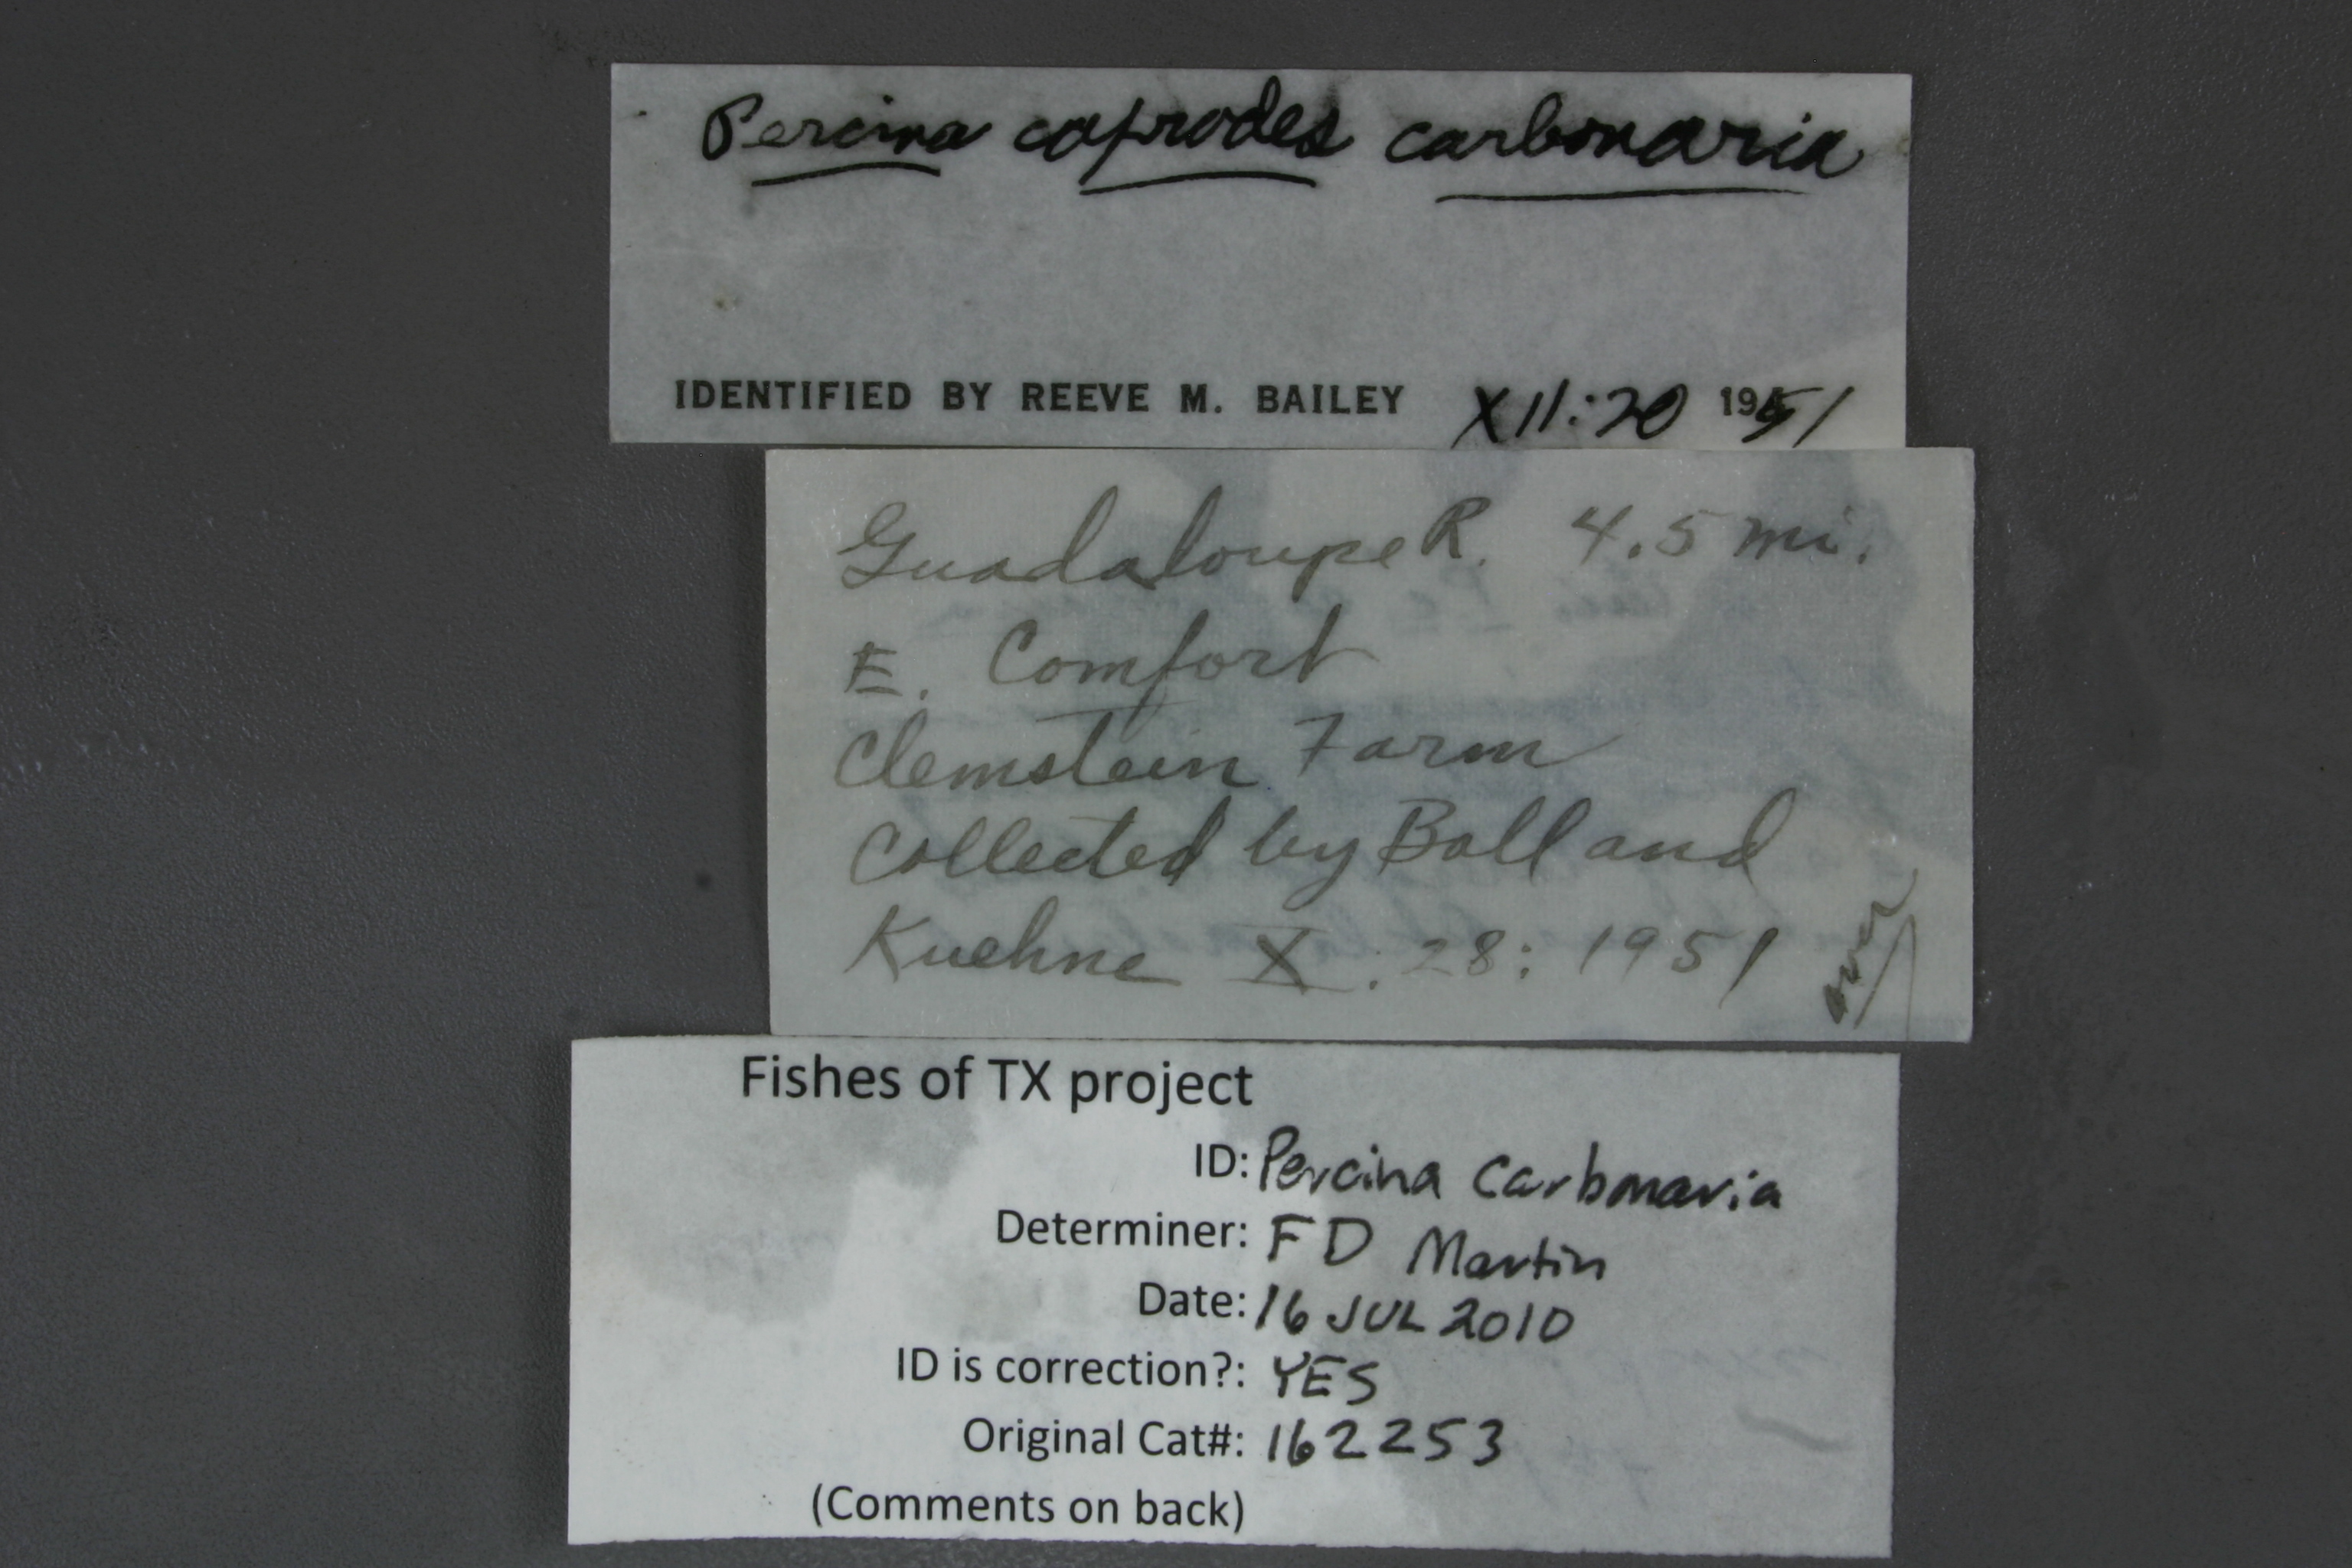 Percina caprodes carbonaria
IDENTIFIED BY REEVE M. BAILEY XII:20 1951
Guadaloupe R. 4.5 mi.
E. Comfort
Clemstein Farm
Collected by Ball and
Kuehne X. 28: 1951
over
Fishes of TX project
ID: Percina carbonaria
Determiner: FD Martin
Date: 16 JUL 2010
ID is correction?: YES
Original Cat#: 162253
(Comments on back)